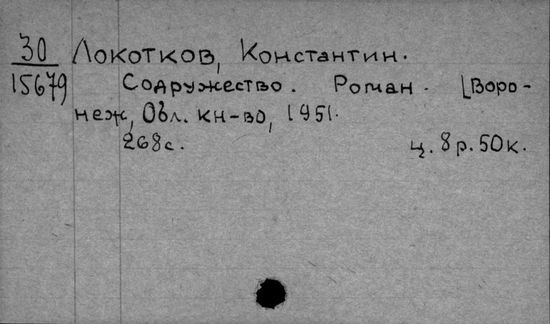 30 Локотков, Константин.
15679 Содружество. Роман. [Воро-
неж, Обл. кн-во, 1951.
268с. ц. 8р. 50к.